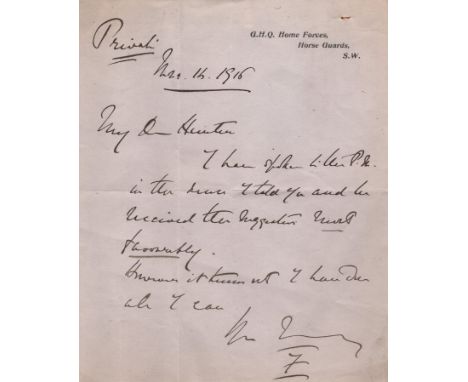 G.H.Q. Home Forces,
Horse Guards,
S.W.
Private
Nov. 14. 1916
My Dear Hunter
I have spoken to the P.M.
in the sense I told you and he
received the suggestion most
favourably.
However it turns out I have done
all I can
Yrs
F